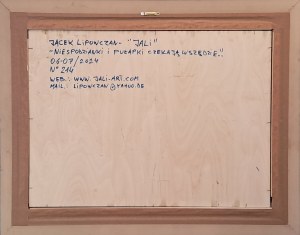 JACEK LIPOWCZAN - "JALI"
- NIESPODZIANKI I PUŁAPKI CZEKAJĄ WSZĘDZIE."
06-07/2024
N° 214
WEB.: WWW.JALI-ART.COM
MAIL.: LIPOWCZAN@YAHOO.DE